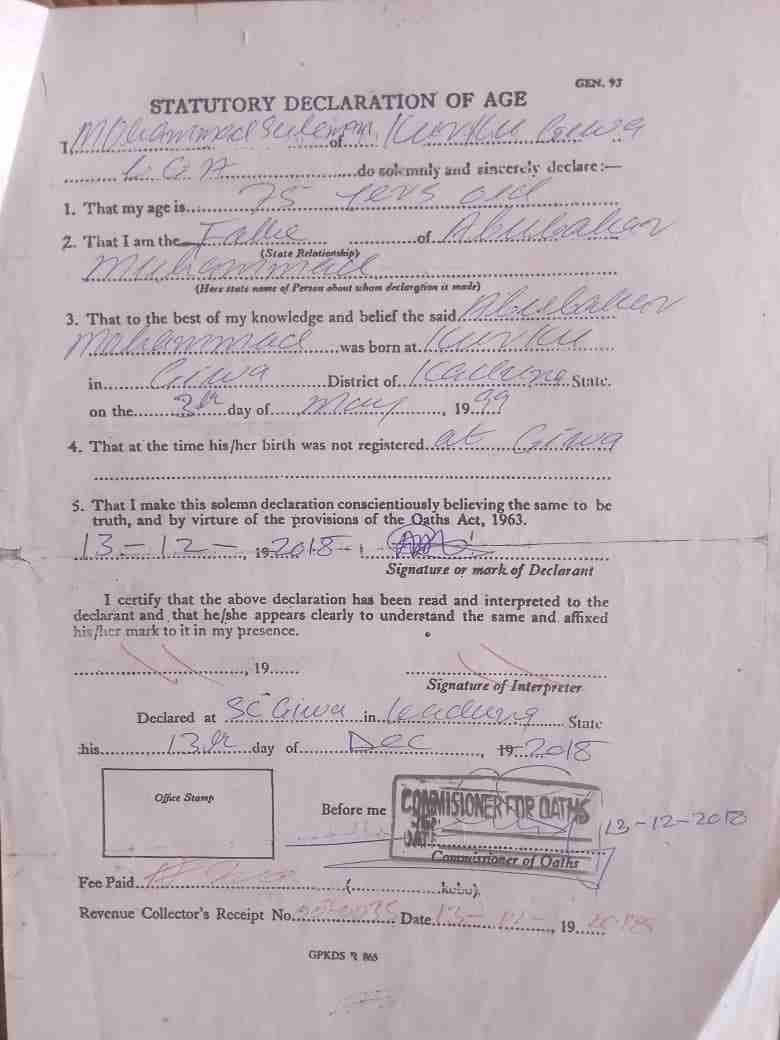 GEN. 93
STATUTORY DECLARATION OF AGE
I, Mohammad Suleman of Kurku Giwa
L.G.A do solemnly and sincerely declare:—
1. That my age is 75 yers old
2. That I am the of Abubakar
(State Relationship)
Muhammad
(Here state name of Person about whom declaration is made)
3. That to the best of my knowledge and belief the said Abubakar
Mohammad was born at Kurku
in Giwa District of Kaduna State.
on the 3th day of may, 1999
4. That at the time his/her birth was not registered at Giwa
5. That I make this solemn declaration conscientiously believing the same to be
truth, and by virtue of the provisions of the Oaths Act, 1963.
13-12-, 19 2018
Signature or mark of Declarant
I certify that the above declaration has been read and interpreted to the
declarant and that he/she appears clearly to understand the same and affixed
his/her mark to it in my presence.
, 19
Signature of Interpreter
Declared at SC Giwa in Kaduna State
this 13th day of Dec, 19 2018
Office Stamp
Before me
COMMISIONER FOR OATHS
DATE
13-12-2018
Commissioner of Oaths
Fee Paid ( kobo).
Revenue Collector's Receipt No. Date 13- 12-, 19
GPKDS R 865